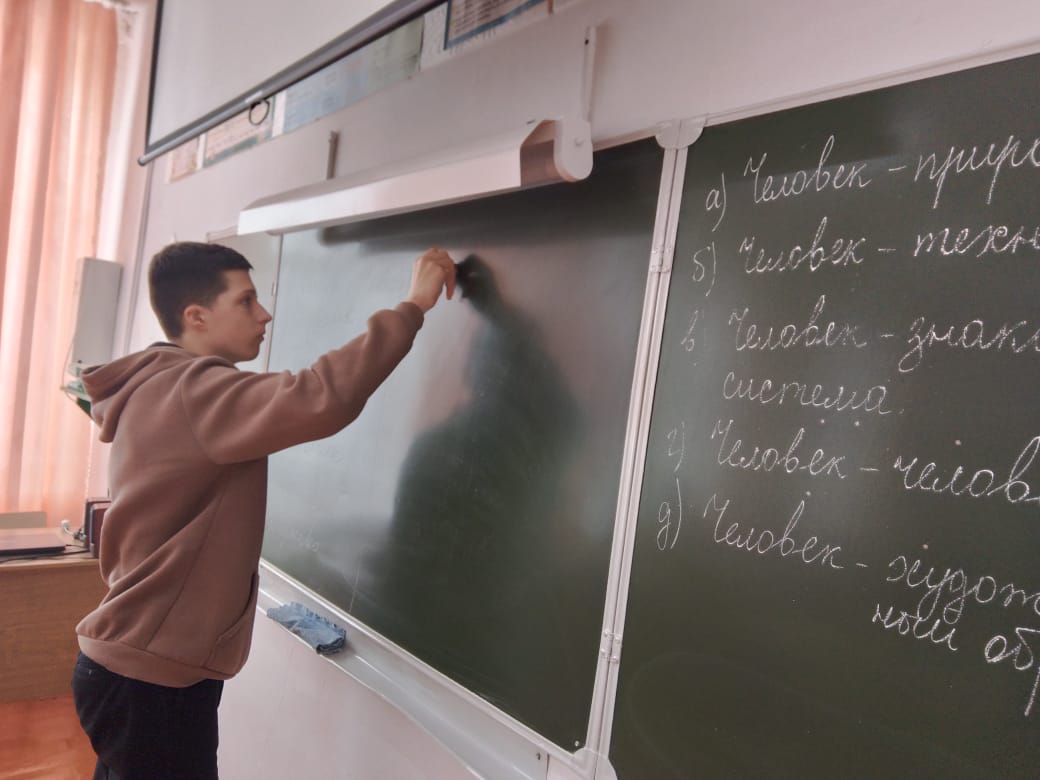 а) Человек - приро
б) Человек - техн
в) Человек - знак
система.
г) Человек - челов
д) Человек - худож
ный обр